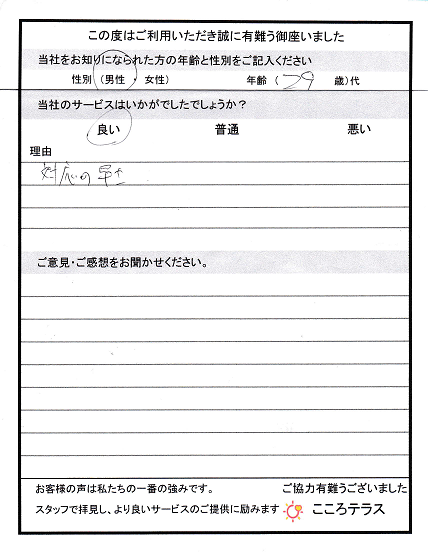 この度はご利用いただき誠に有難う御座いました
当社をお知りになられた方の年齢と性別をご記入ください
性別 (男性 ・ 女性) 年齢 ( 29 歳)代
当社のサービスはいかがでしたでしょうか?
良い 普通 悪い
理由
対応の早さ
ご意見・ご感想をお聞かせください。
お客様の声は私たちの一番の強みです。 ご協力有難うございました
スタッフで拝見し、より良いサービスのご提供に励みます こころテラス